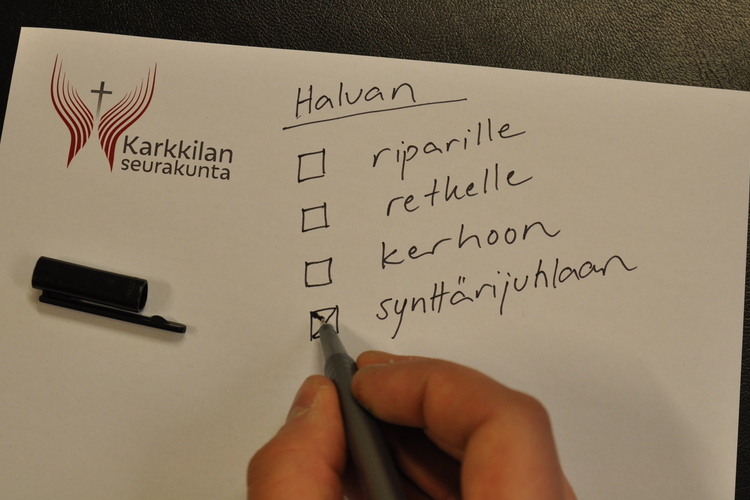 Karkkilan
seurakunta
Haluan
riparille
retkelle
kerhoon
synttärijuhlaan